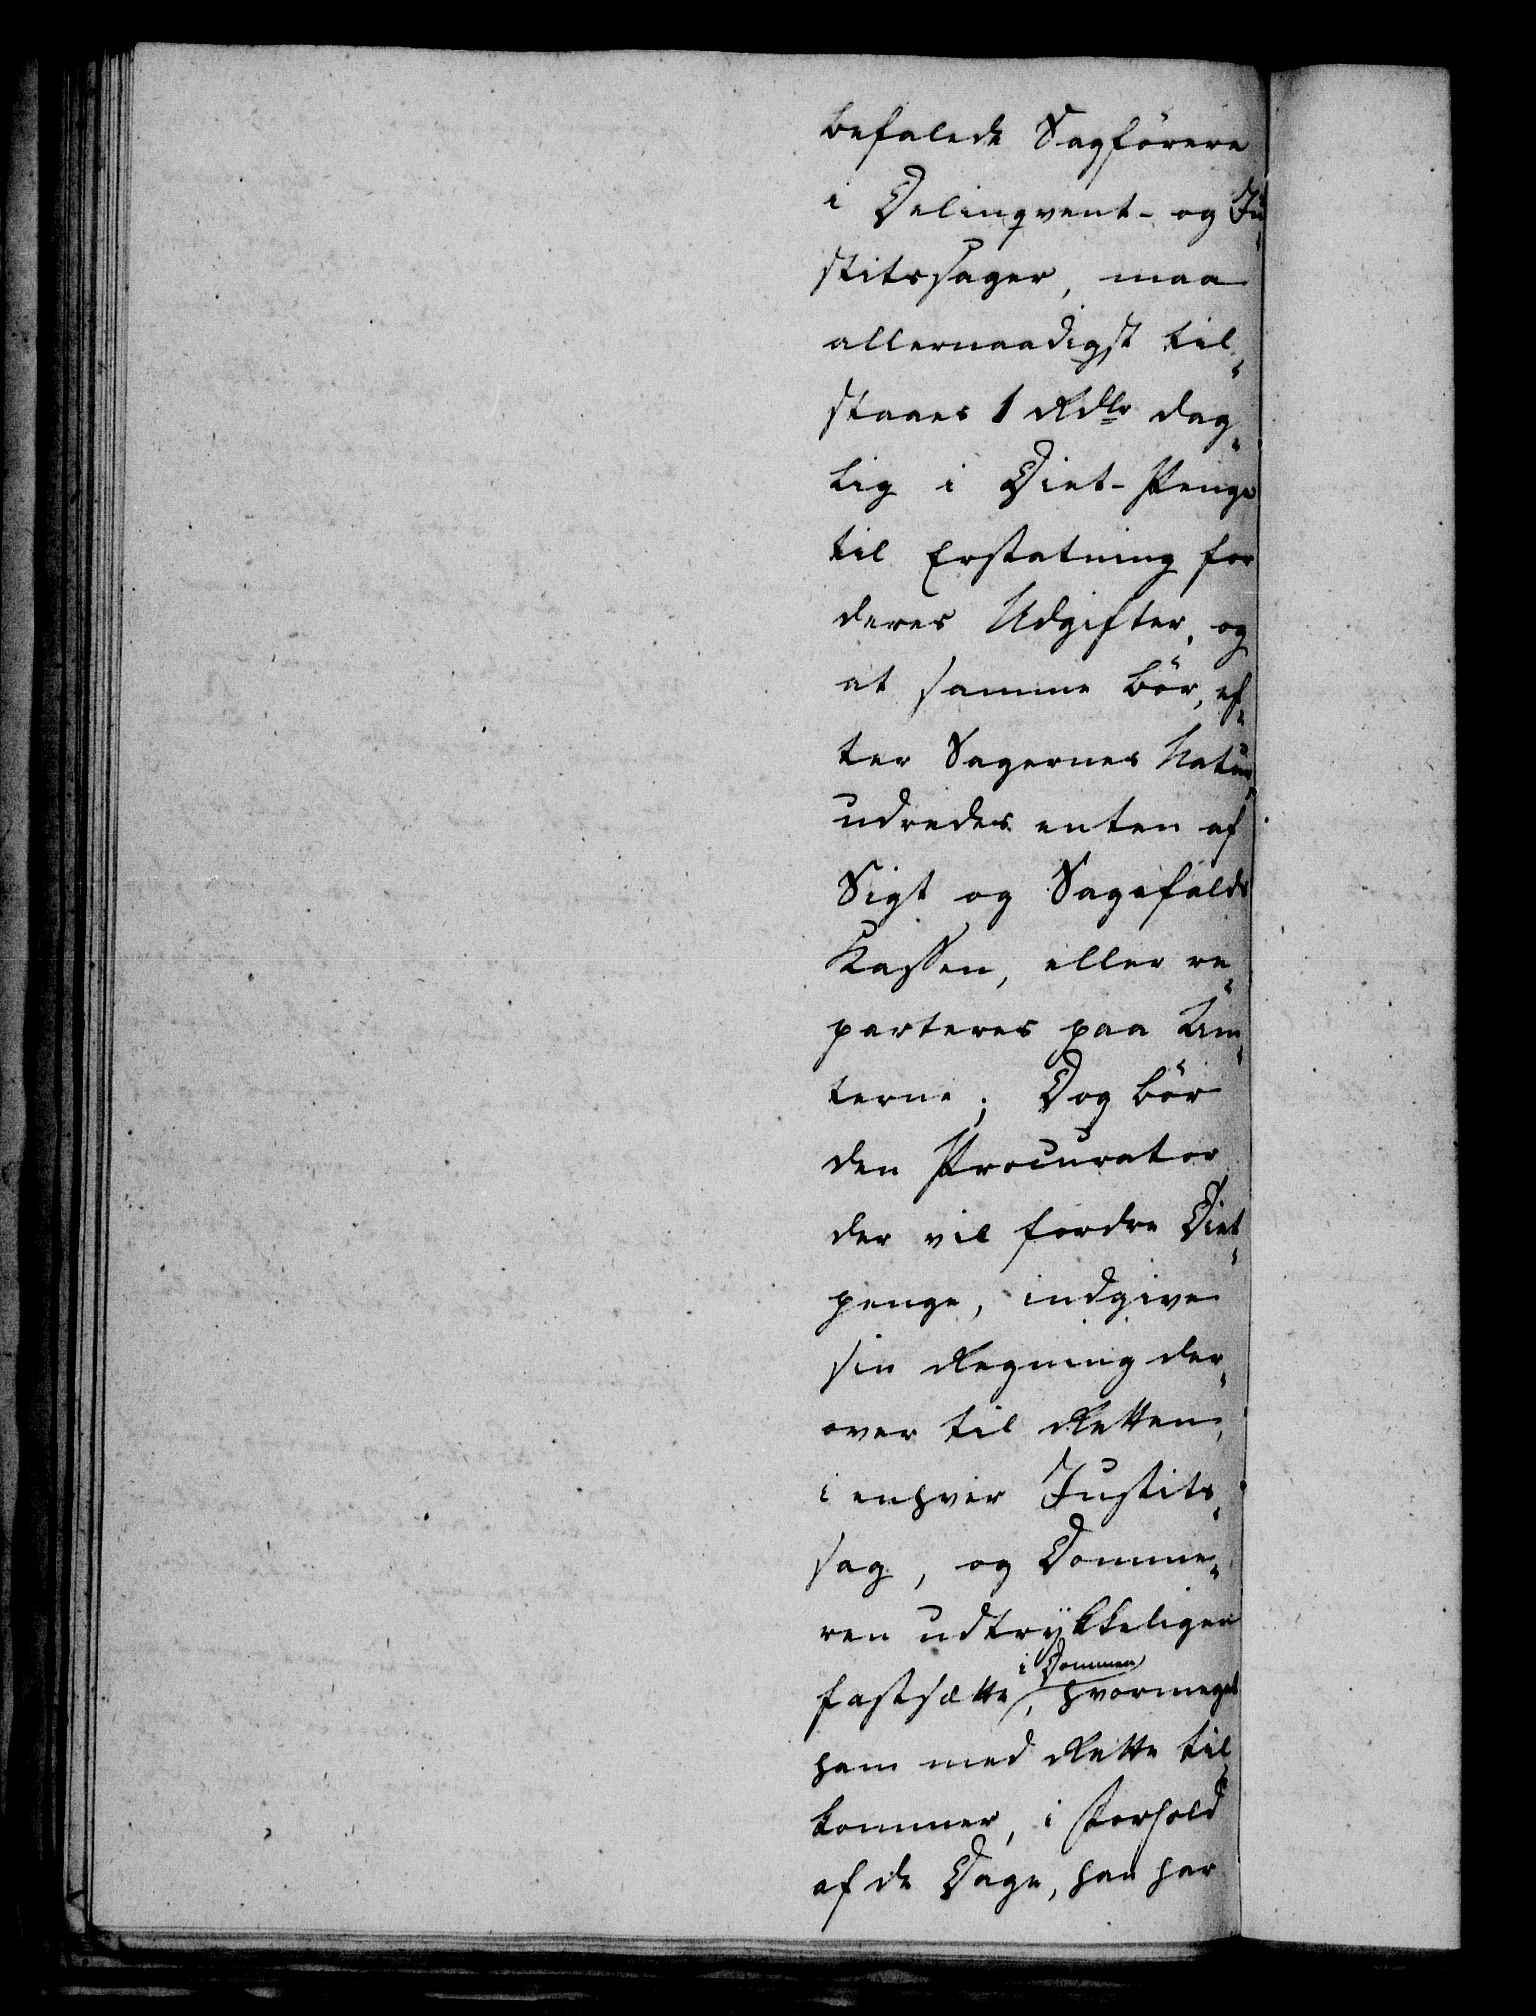 befalede Sagförere
i Delinqvent- og Ju-
stitssager, maa
allernaadigst til-
staaes 1 Rdlr dag-
lig i Diet-Penge
til Erstatning for
deres Udgifter, og
at samme bör, ef-
ter Sagernes Natur,
udredes enten af
Sigt og Sagefalds
Kassen, eller re-
parteres paa Am-
terne; Dog bör
den Procurator
der vil fordre Diet-
penge, indgive
sin Regning der-
over til Retten,
i enhver Justits-
sag, og Domme-
ren udtrykkeligen
fastsætte i Dommen, hvormeget
ham med Rette til-
kommer, i Forhold
af de Dage, han har